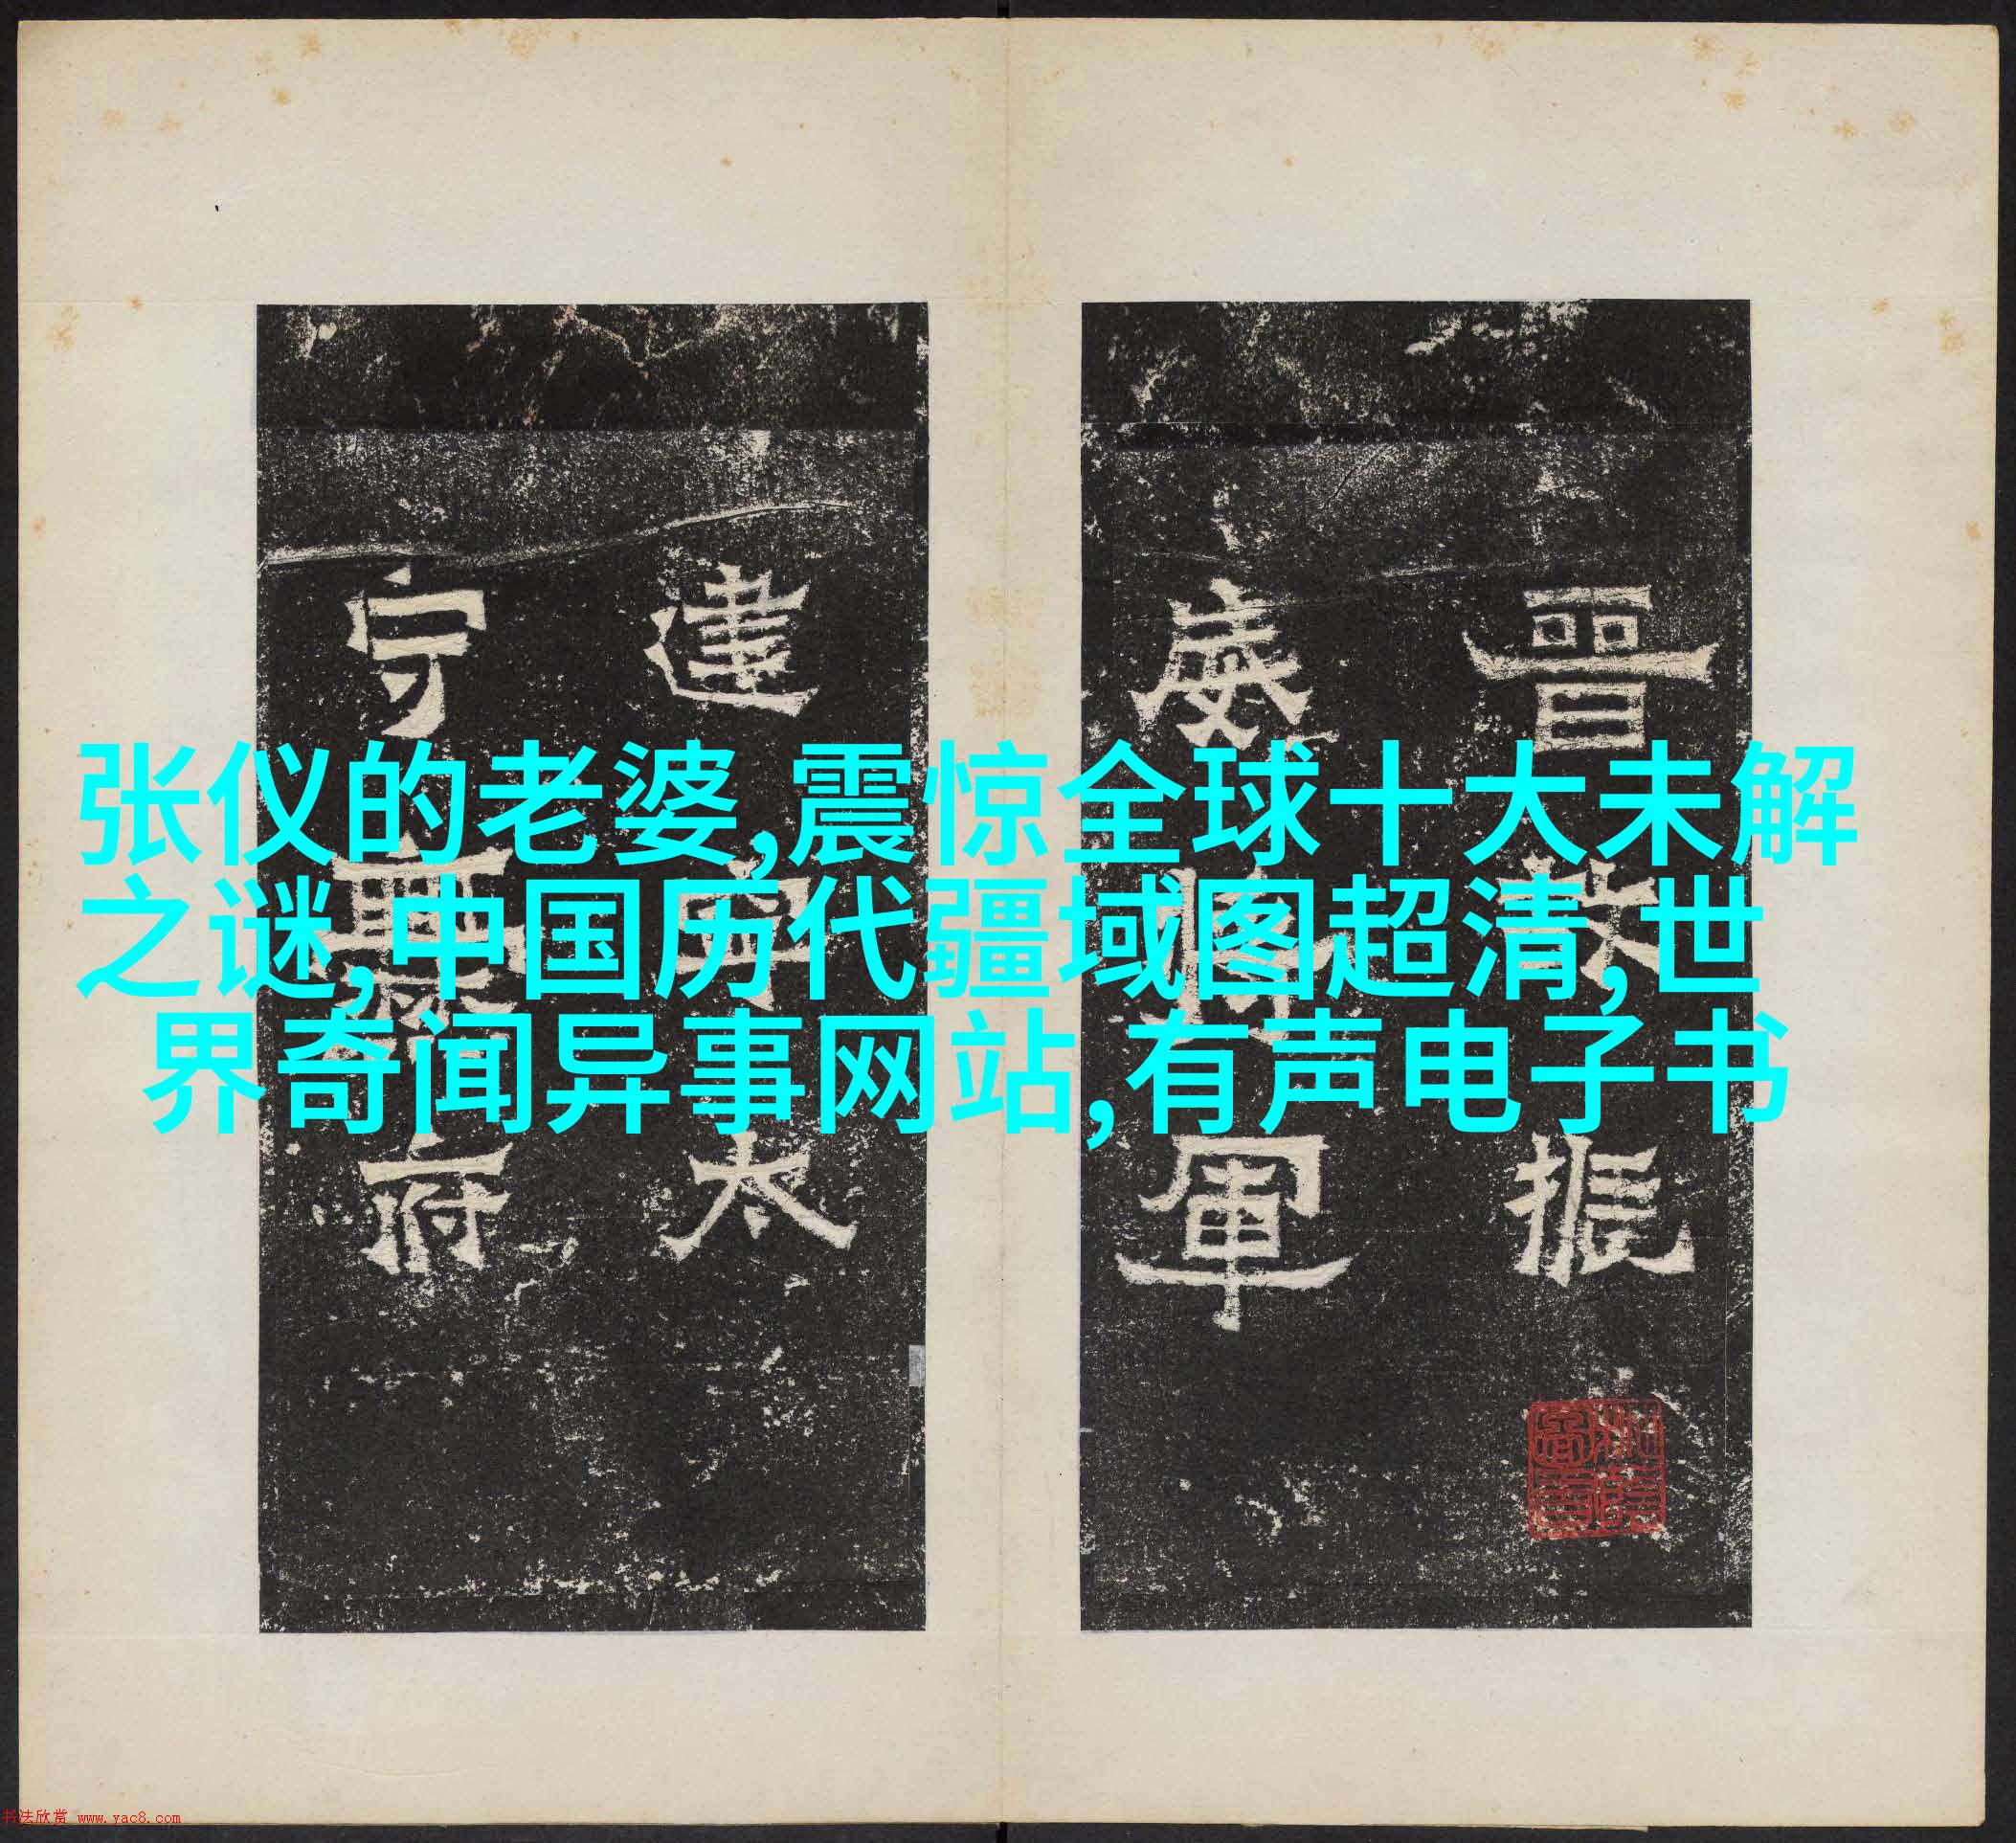 张仪的老婆,震惊全球十大未解
之谜,中国历代疆域图超清,世
界奇闻异事网站,有声电子书
晉故振
威將軍
建寧太
守爨府
书法欣赏 www.yac8.com